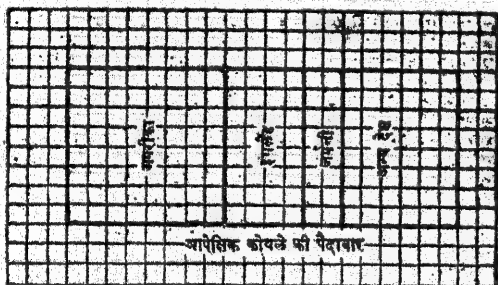 अमरीका
इंगलैंड
जर्मनी
अन्य देश
आपेक्षिक कोयले की पैदावार